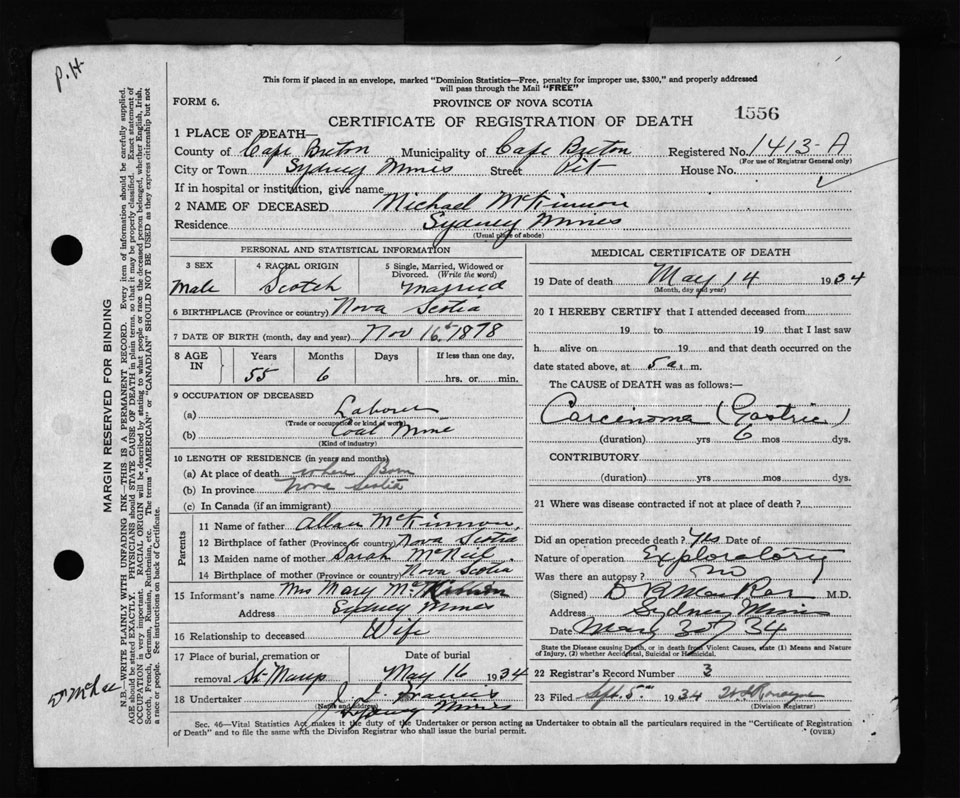 P.H.
This form if placed in an envelope, marked "Dominion Statistics—Free, penalty for improper use, $300," and properly addressed
will pass through the Mail "FREE"
FORM 6.
PROVINCE OF NOVA SCOTIA
CERTIFICATE OF REGISTRATION OF DEATH
1556
1 PLACE OF DEATH—
County of Cape Breton Municipality of Cape Breton Registered No. 1413-A
(For use of Registrar General only)
City or Town Sydney Mines Street Pit House No.
If in hospital or institution, give name
2 NAME OF DECEASED Michael McKinnon
Residence Sydney Mines
(Usual place of abode)
PERSONAL AND STATISTICAL INFORMATION
3 SEX Male
4 RACIAL ORIGIN Scotch
5 Single, Married, Widowed or Divorced. (Write the word) Married
6 BIRTHPLACE (Province or country) Nova Scotia
7 DATE OF BIRTH (month, day and year) Nov 16th 1878
8 AGE IN Years 55 Months 6 Days If less than one day, hrs. or min.
9 OCCUPATION OF DECEASED
(a) Laborer
(Trade or occupation or kind of work)
(b) Coal Mine
(Kind of industry)
10 LENGTH OF RESIDENCE (in years and months)
(a) At place of death where Born
(b) In province Nova Scotia
(c) In Canada (if an immigrant)
Parents
11 Name of father Allan McKinnon,
12 Birthplace of father (Province or country) Nova Scotia
13 Maiden name of mother Sarah McNeil
14 Birthplace of mother (Province or country) Nova Scotia
15 Informant's name Mrs Mary McKinnon
Address Sydney Mines
16 Relationship to deceased Wife
17 Place of burial, cremation or removal St. Marys
Date of burial May 16 1934
18 Undertaker J. J. Francis
(Name and address)
Sydney Mines
MEDICAL CERTIFICATE OF DEATH
19 Date of death May 14 1934
(Month, day and year)
20 I HEREBY CERTIFY that I attended deceased from
19 to 19 that I last saw
h alive on 19 and that death occurred on the
date stated above, at 5 a. m.
The CAUSE of DEATH was as follows:—
Carcinoma (Gastric)
(duration) yrs 6 mos dys.
CONTRIBUTORY
(duration) yrs mos dys.
21 Where was disease contracted if not at place of death?
Did an operation precede death? Yes Date of
Nature of operation Exploratory
Was there an autopsy? no
(Signed) M.D.
Address Sydney Mines
Date 34
State the Disease causing Death, or in death from Violent Causes, state (1) Means and Nature
of Injury, (2) whether Accidental, Suicidal or Homicidal.
22 Registrar's Record Number 3
23 Filed Sept. 5th 1934
(Division Registrar)
Sec. 46—Vital Statistics Act makes it the duty of the Undertaker or person acting as Undertaker to obtain all the particulars required in the "Certificate of Registration
of Death" and to file the same with the Division Registrar who shall issue the burial permit.
(OVER)
MARGIN RESERVED FOR BINDING
N.B.—WRITE PLAINLY WITH UNFADING INK—THIS IS A PERMANENT RECORD. Every item of information should be carefully supplied.
AGE should be stated EXACTLY. PHYSICIANS should STATE CAUSE OF DEATH in plain terms, so that it may be properly classified. Exact statement of
OCCUPATION is very important. RACIAL ORIGIN will be described by stating to what people or race the deceased person belonged, whether English, Irish,
Scotch, French, German, Russian, Ruthenian, etc. The terms "AMERICAN" or "CANADIAN" SHOULD NOT BE USED as they express citizenship but not
a race or people. See instructions on back of Certificate.